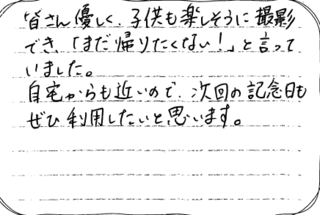 皆さん優しく、子供も楽しそうに撮影
でき、「まだ帰りたくない!」と言って
いました。
自宅からも近いので、次回の記念日も
ぜひ利用したいと思います。